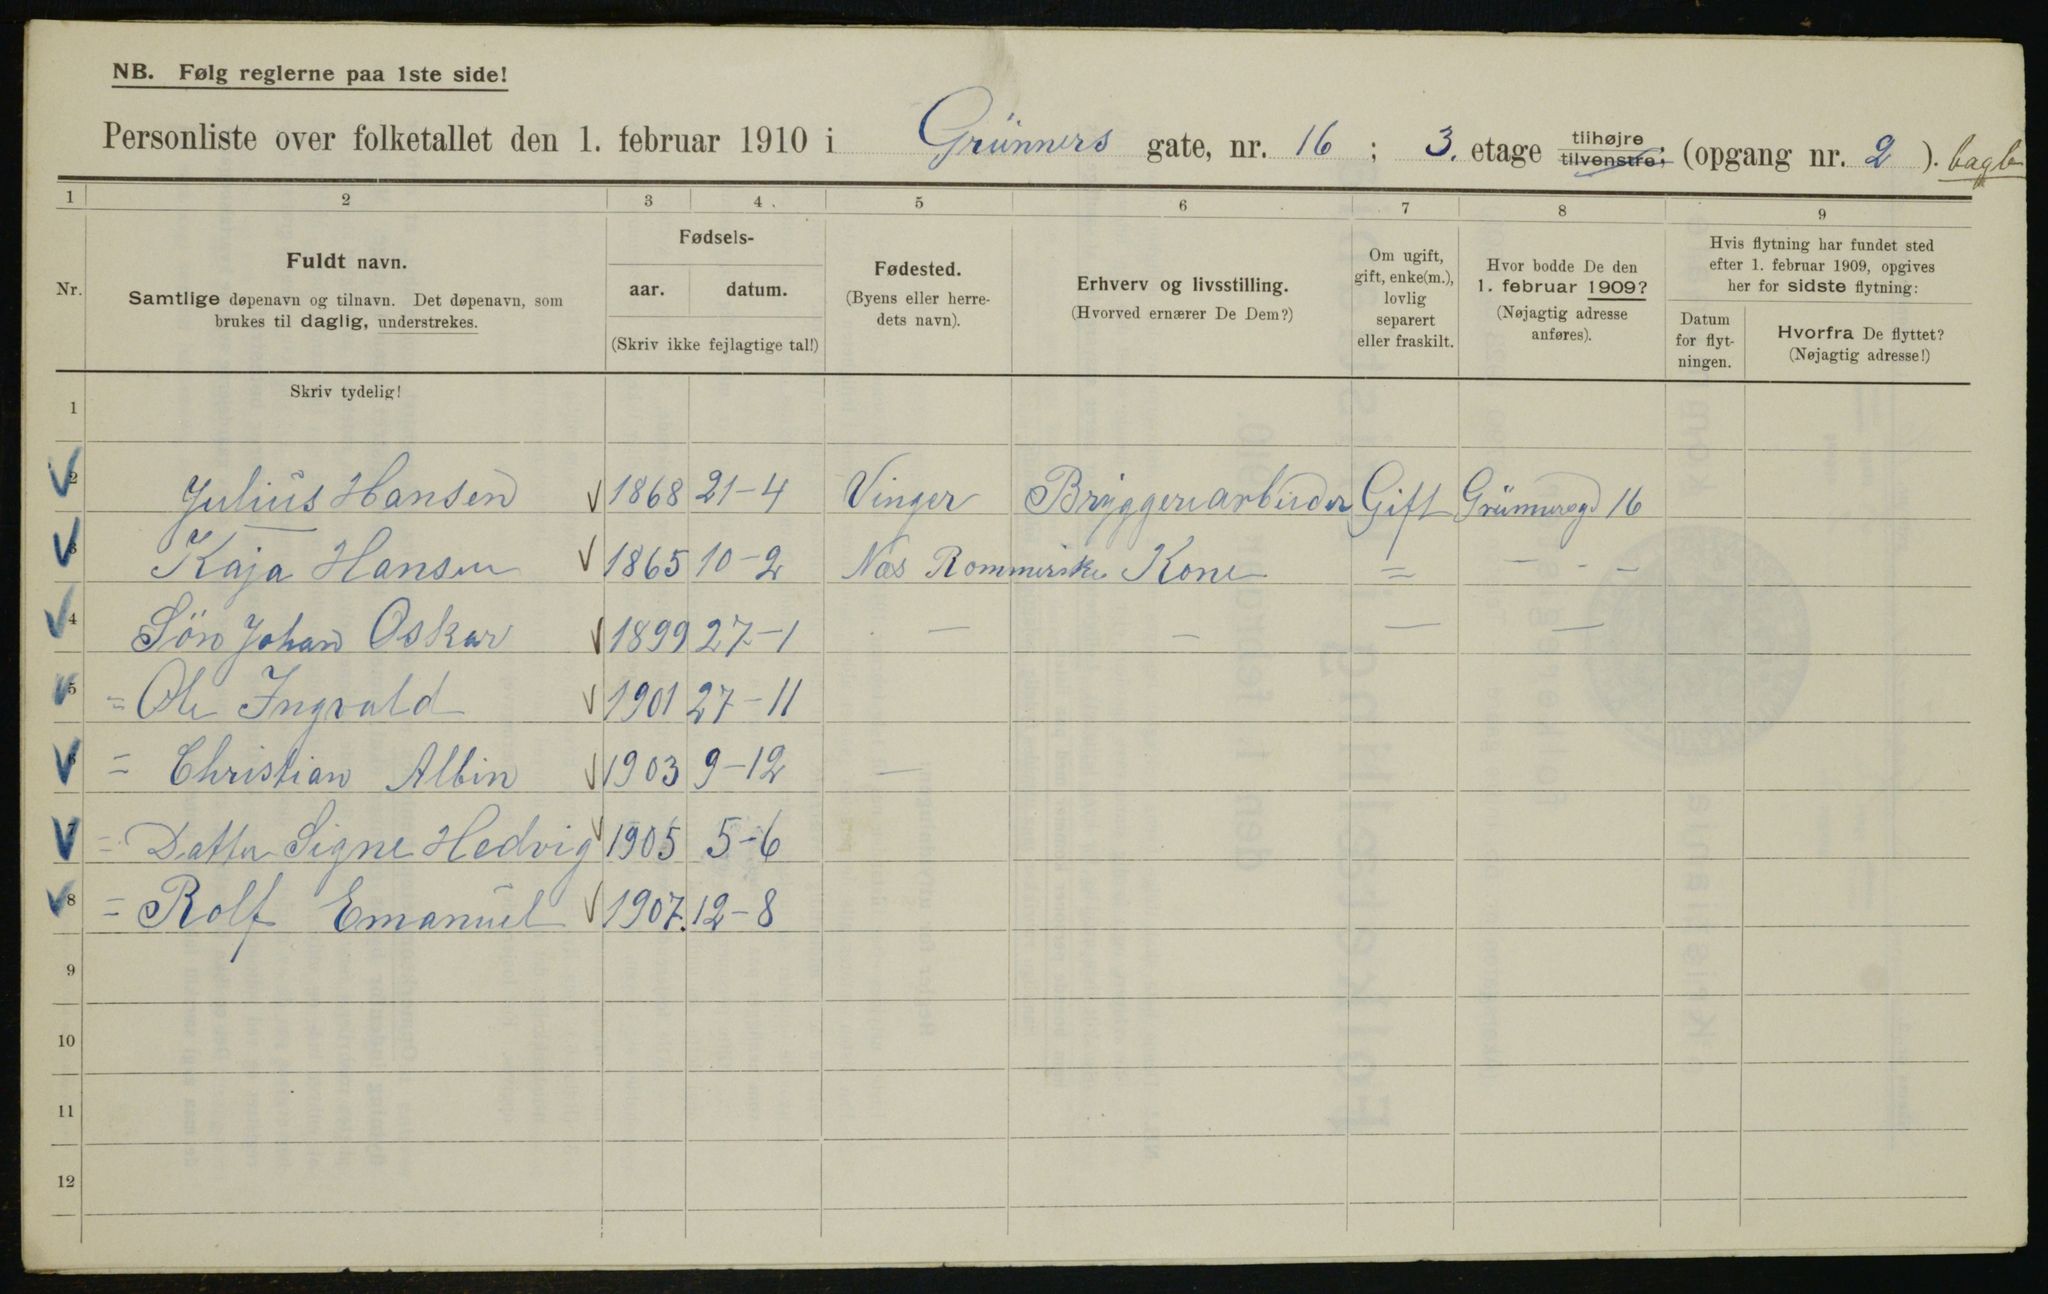 NB. Følg reglerne paa 1ste side!
Personliste over folketallet den 1. februar 1910 i Grünners gate, nr. 16 ; 3. etage tilhøjre tilvenstre; (opgang nr. 2 ). bagb
1 2 3 4 5 6 7 8 9
Nr.
Fuldt navn.
Samtlige døpenavn og tilnavn. Det døpenavn, som
brukes til daglig, understrekes.
Fødsels-
aar. datum.
(Skriv ikke fejlagtige tal!)
Fødested.
(Byens eller herre-
dets navn).
Erhverv og livsstilling.
(Hvorved ernærer De Dem?)
Om ugift,
gift, enke(m.),
lovlig
separert
eller fraskilt.
Hvor bodde De den
1. februar 1909?
(Nøjagtig adresse
anføres).
Hvis flytning har fundet sted
efter 1. februar 1909, opgives
her for sidste flytning:
Datum
for flyt-
ningen.
Hvorfra De flyttet?
(Nøjagtig adresse!)
Skriv tydelig!
1
2 Julius Hansen 1868 21-4 Vinger Bryggeriarbeider Gift Grünnersgd 16
3 Kaja Hansen 1865 10-2 Næs Rommerike Kone = - - -
4 Søn Johan Oskar 1899 27-1 — – — —
5 = Ole Ingvald 1901 27-11
6 = Christian Albin 1903 9-12 —
7 = Datter Signe Hedvig 1905 5-6
8 = Rolf Emanuel 1907. 12-8
9
10
11
12